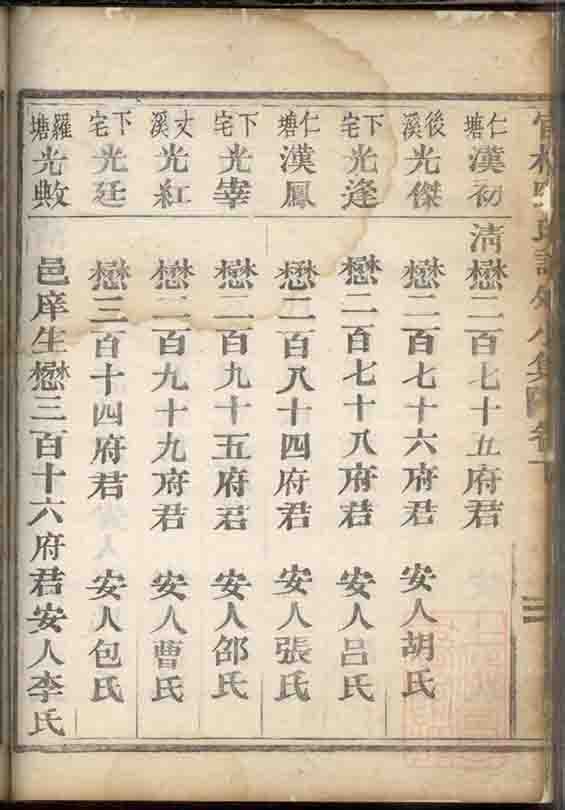 譜外小集 卷下
仁塘 漢初 清懋二百七十五府君
後溪 光傑 懋二百七十六府君 安人胡氏
下宅 光逢 懋二百七十八府君 安人呂氏
仁塘 漢鳳 懋二百八十四府君 安人張氏
下宅 光宰 懋二百九十五府君 安人邵氏
丈溪 光紅 懋二百九十九府君 安人曹氏
下宅 光廷 懋三百十四府君 安人包氏
羅塘 光敟 邑庠生懋三百十六府君安人李氏